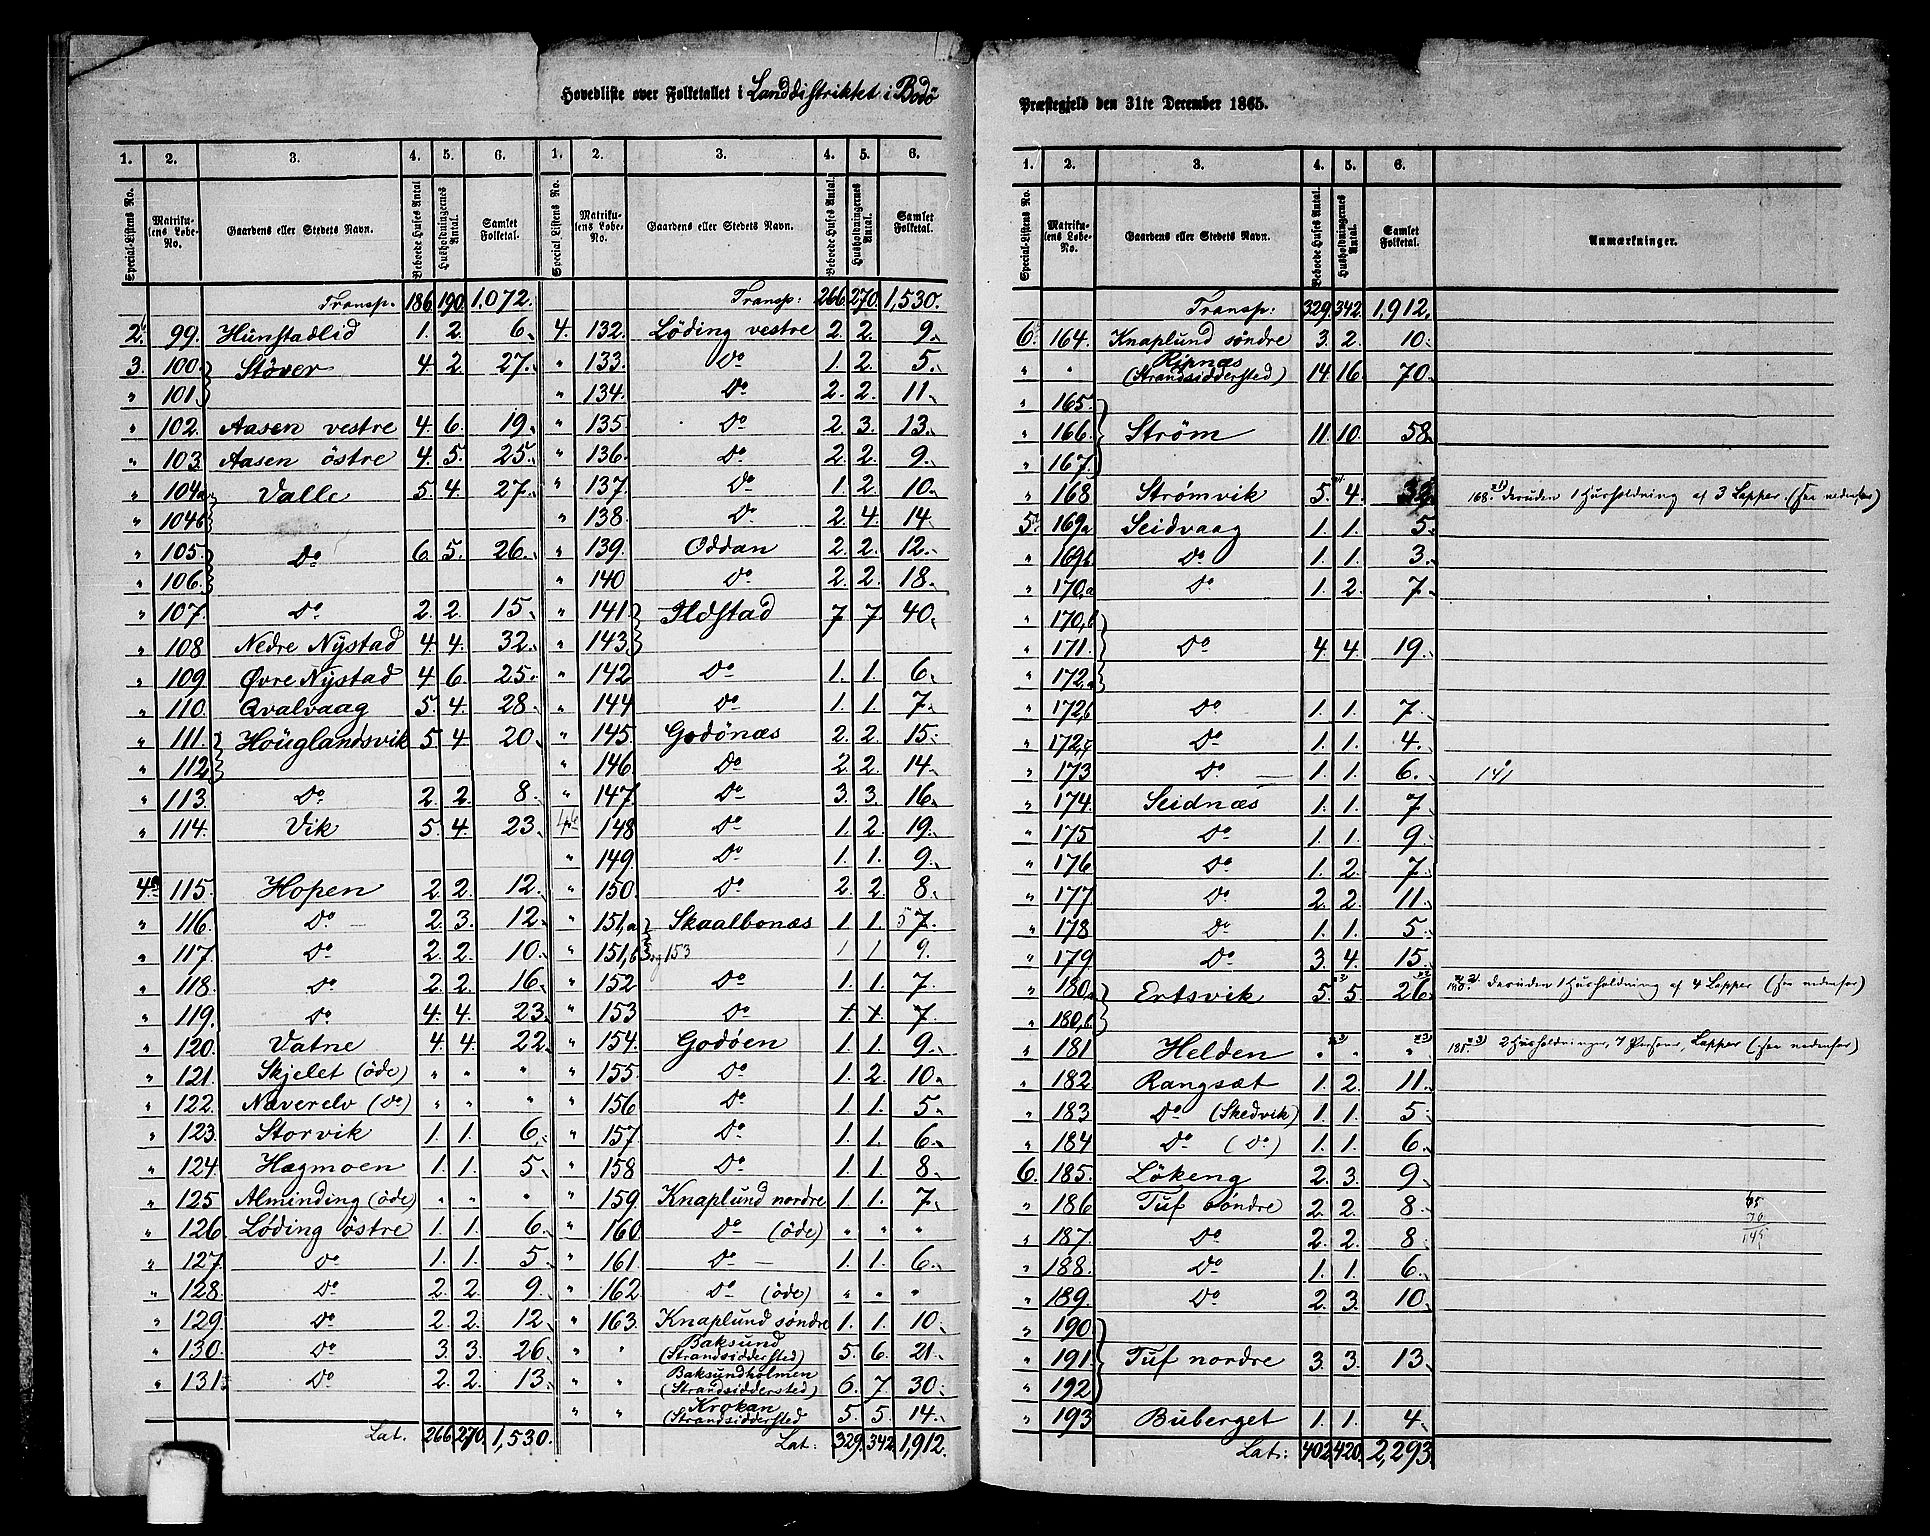 Hovedliste over Folketallet i Landdistriktet i Bodö
1. 2. 3. 4. 5. 6. 1. 2. 3. 4. 5. 6.
Special-Listens No. Matrikulens Løbe-No. Gaardens eller Stedets Navn. Beboede Huses Antal Husholdningernes Antal. Samlet Folketal. Special Listens No. Matrikulens Løbe-No. Gaardens eller Stedets Navn. Beboede Huses Antal. Husholdningernes Antal. Samlet Folketal.
Transp. 186 190 1,072.
2. 99. Hunstadlid 1. 2. 6.
3. 100. Støver 4. 2. 27.
" 101.
" 102. Aasen vestre 4. 6. 19.
" 103. Aasen östre 4. 5. 25.
" 104a Valle 5. 4. 27.
" 104b
" 105. Do 6. 5. 26.
" 106.
" 107. Do 2. 2. 15.
" 108 Nedre Nystad 4. 4. 32.
" 109 Øvre Nystad 4. 6. 25.
" 110. Qvalvaag 5. 4. 28.
" 111. Höuglandsvik 5. 4. 20.
" 112
" 113. Do 2. 2. 8.
" 114. Vik 5. 4. 23.
4a 115. Hopen 2. 2. 12.
" 116. Do 2. 3. 12.
" 117. Do 2. 2. 10.
" 118. Do 2. 2. 16.
" 119. Do 4. 4. 23.
" 120. Vatne 4. 4. 22.
" 121. Skjelet (öde) " " "
" 122. Naverelv (Do) " " "
" 123. Storvik 1. 1. 6.
" 124. Hagmoen 1. 1. 5.
" 125 Alminding (öde) " " "
" 126. Løding östre 1. 1. 6.
" 127. Do 1. 1. 5.
" 128. Do 2. 2. 9.
" 129. Do 2. 2. 12.
" 130. Do 3. 3. 26.
" 131. Do 2. 2. 13.
Lat. 266 270. 1,530.
Transp: 266. 270. 1,530.
4. 132. Løding vestre 2. 2. 9.
" 133. Do 1. 2. 5.
" 134. Do 2. 2. 11.
" 135. Do 2. 3. 13.
" 136. Do 2. 2. 9.
" 137. Do 1. 2. 10.
" 138. Do 2. 4. 14.
" 139. Oddan 2. 2. 12.
" 140 Do 2. 2. 18.
" 141 Ildstad 7 7 40.
" 143
" 142 Do 1. 1. 6.
" 144 Do 1. 1. 7.
" 145 Godönæs 2. 2. 15.
" 146. Do 2. 2. 14.
" 147. Do 3. 3. 16.
148 Do 1. 2. 19.
" 149 Do 1. 1. 9.
" 150. Do 2. 2. 8.
" 151,a Skaalbonæs 1. 1. 7.
" 151,b og 153 1 1 9.
" 152 Do 1. 1. 7.
" 153 Do 7.
" 154. Godøen 1. 1. 9.
" 155. Do 1. 2. 10.
" 156 Do 1. 1. 5.
" 157. Do 1. 1. 6.
" 158 Do 1. 1. 8.
" 159. Knaplund nordre 1. 1. 7.
" 160. Do (öde) " " "
" 161. Do 1. 1. 6.
" 162 Do (öde) " " "
" 163. Knaplund søndre 1. 1. 10.
" " Baksund (Strandsiddersted) 5. 6. 21.
" " Baksundholmen (Strandsiddersted) 6. 7. 30.
" " Krokan (Strandsiddersted 5. 5. 14.
Lat: 329. 342. 1,912.
Præstegjeld den 31te December 1865.
1. 2. 3. 4. 5. 6.
Special-Listens No. Matrikulens Løbe-No. Gaardens eller Stedets Navn. Beboede Huses Antal. Husholdningernes Antal. Samlet Folketal. Anmærkninger.
Transp: 329 342. 1,912.
6. 164. Knaplund søndre 3. 2. 10.
" " Ripnæs (Strandsiddersted) 14. 16. 70.
" 165.
" 166. Strøm 11. 10. 58.
" 167.
" 168 Strømvik 5. 4. 168. deruden 1 Husholdning af 3 Lapper. (see nedenfor)
5. 169a Seidvaag 1. 1. 5.
" 169b Do 1. 1. 3.
" 170,a Do 1. 2. 7.
" 170,b
" 171. Do 4. 4. 19.
" 172,a
" 172,b Do 1. 1. 7.
" 172,c Do 1. 1. 4.
" 173 Do 1. 1. 6.
" 174. Seidnæs 1. 1. 7.
" 175 Do 1. 1. 9.
" 176 Do 1. 2. 7.
" 177. Do 2. 2. 11.
" 178 Do 1. 1. 5.
" 179 Do 3. 4. 15.
" 180,a Ertsvik 5. 5. 26. 180. deruden 1 Husholdning af 4 Lapper (see nedenfor)
" 180,b
" 181 Helden " " " 181. 2 Husholdninger, 7 Personer, Lapper (see nedenfor)
" 182 Rangsæt 1. 2. 11.
" 183 Do (Skedvik) 1. 1. 5.
" 184 Do (Do) 1. 1. 6.
6. 185. Lökeng 2. 3. 9.
" 186 Tuf söndre 2. 2. 8.
" 187. Do 2. 2. 8.
" 188. Do 1. 1. 6.
" 189. Do 2. 3. 10.
" 190
" 191 Tuf nordre 3. 3. 13.
" 192
" 193 Buberget 1. 1. 4.
Lat: 402. 420. 2,293.